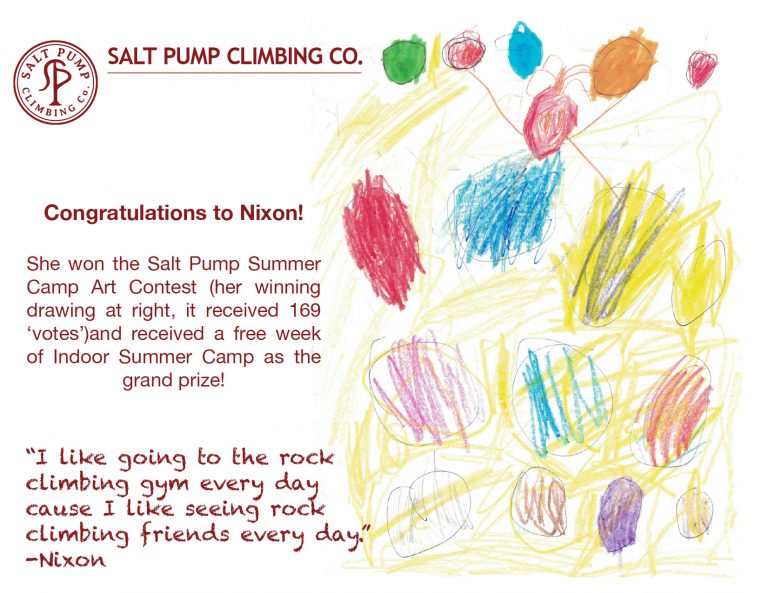 SALT PUMP
CLIMBING Co.
SP
SALT PUMP CLIMBING CO.
Congratulations to Nixon!
She won the Salt Pump Summer
Camp Art Contest (her winning
drawing at right, it received 169
‘votes’)and received a free week
of Indoor Summer Camp as the
grand prize!
“I like going to the rock
climbing gym every day
cause I like seeing rock
climbing friends every day.”
-Nixon